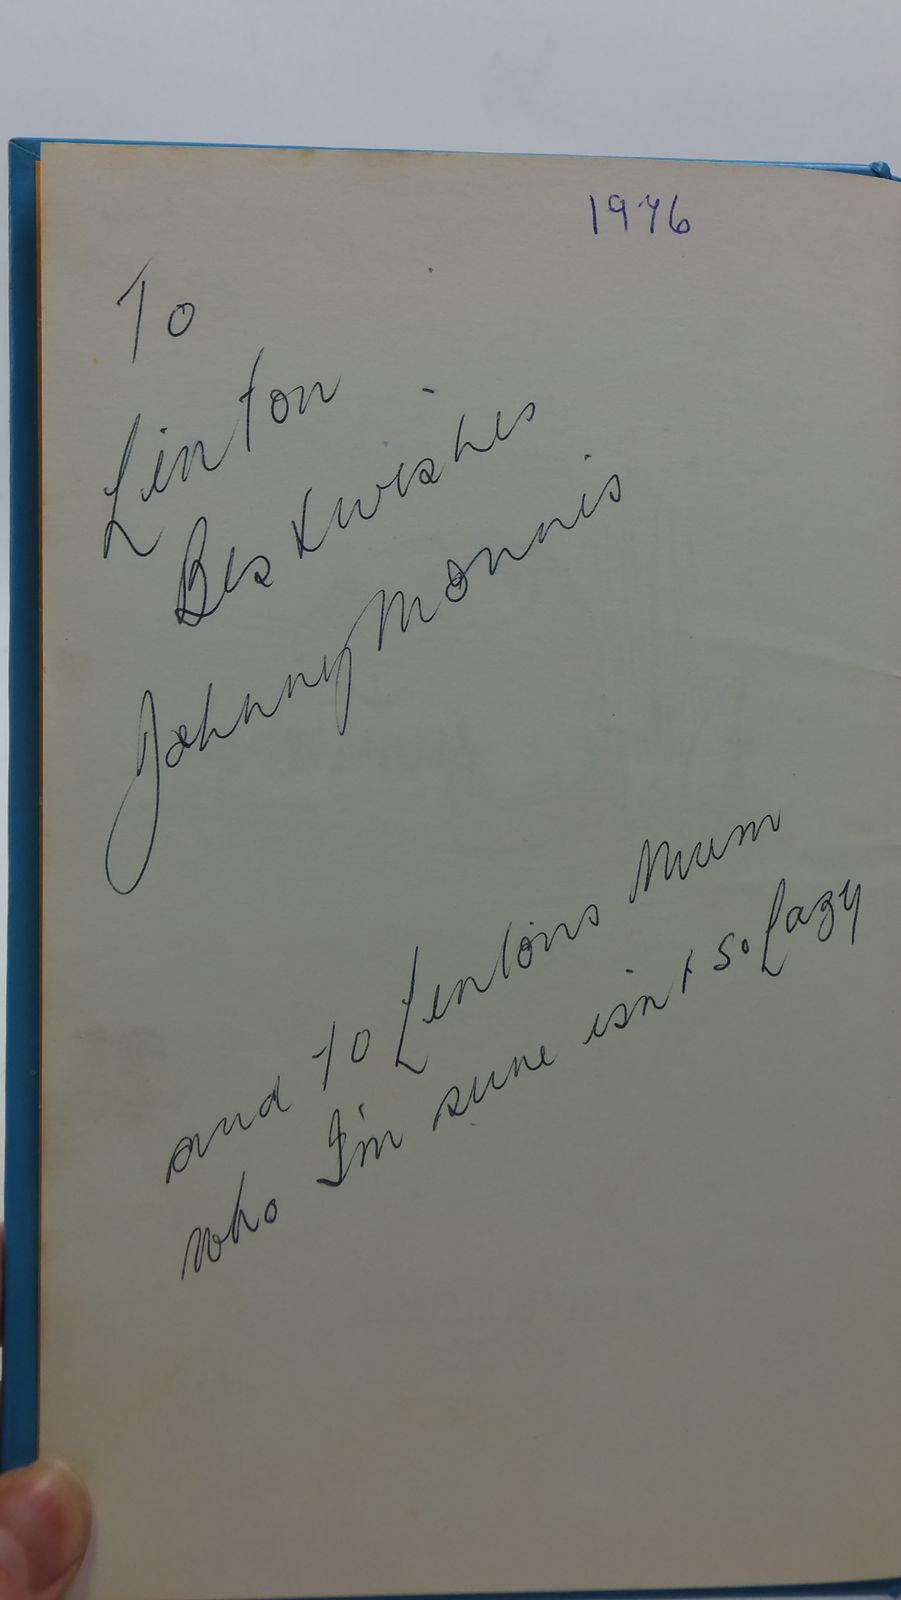 1976
To
Linton
Best wishes
Johnny Morris
and to Lintons Mum
who I'm sure isn't so Lazy